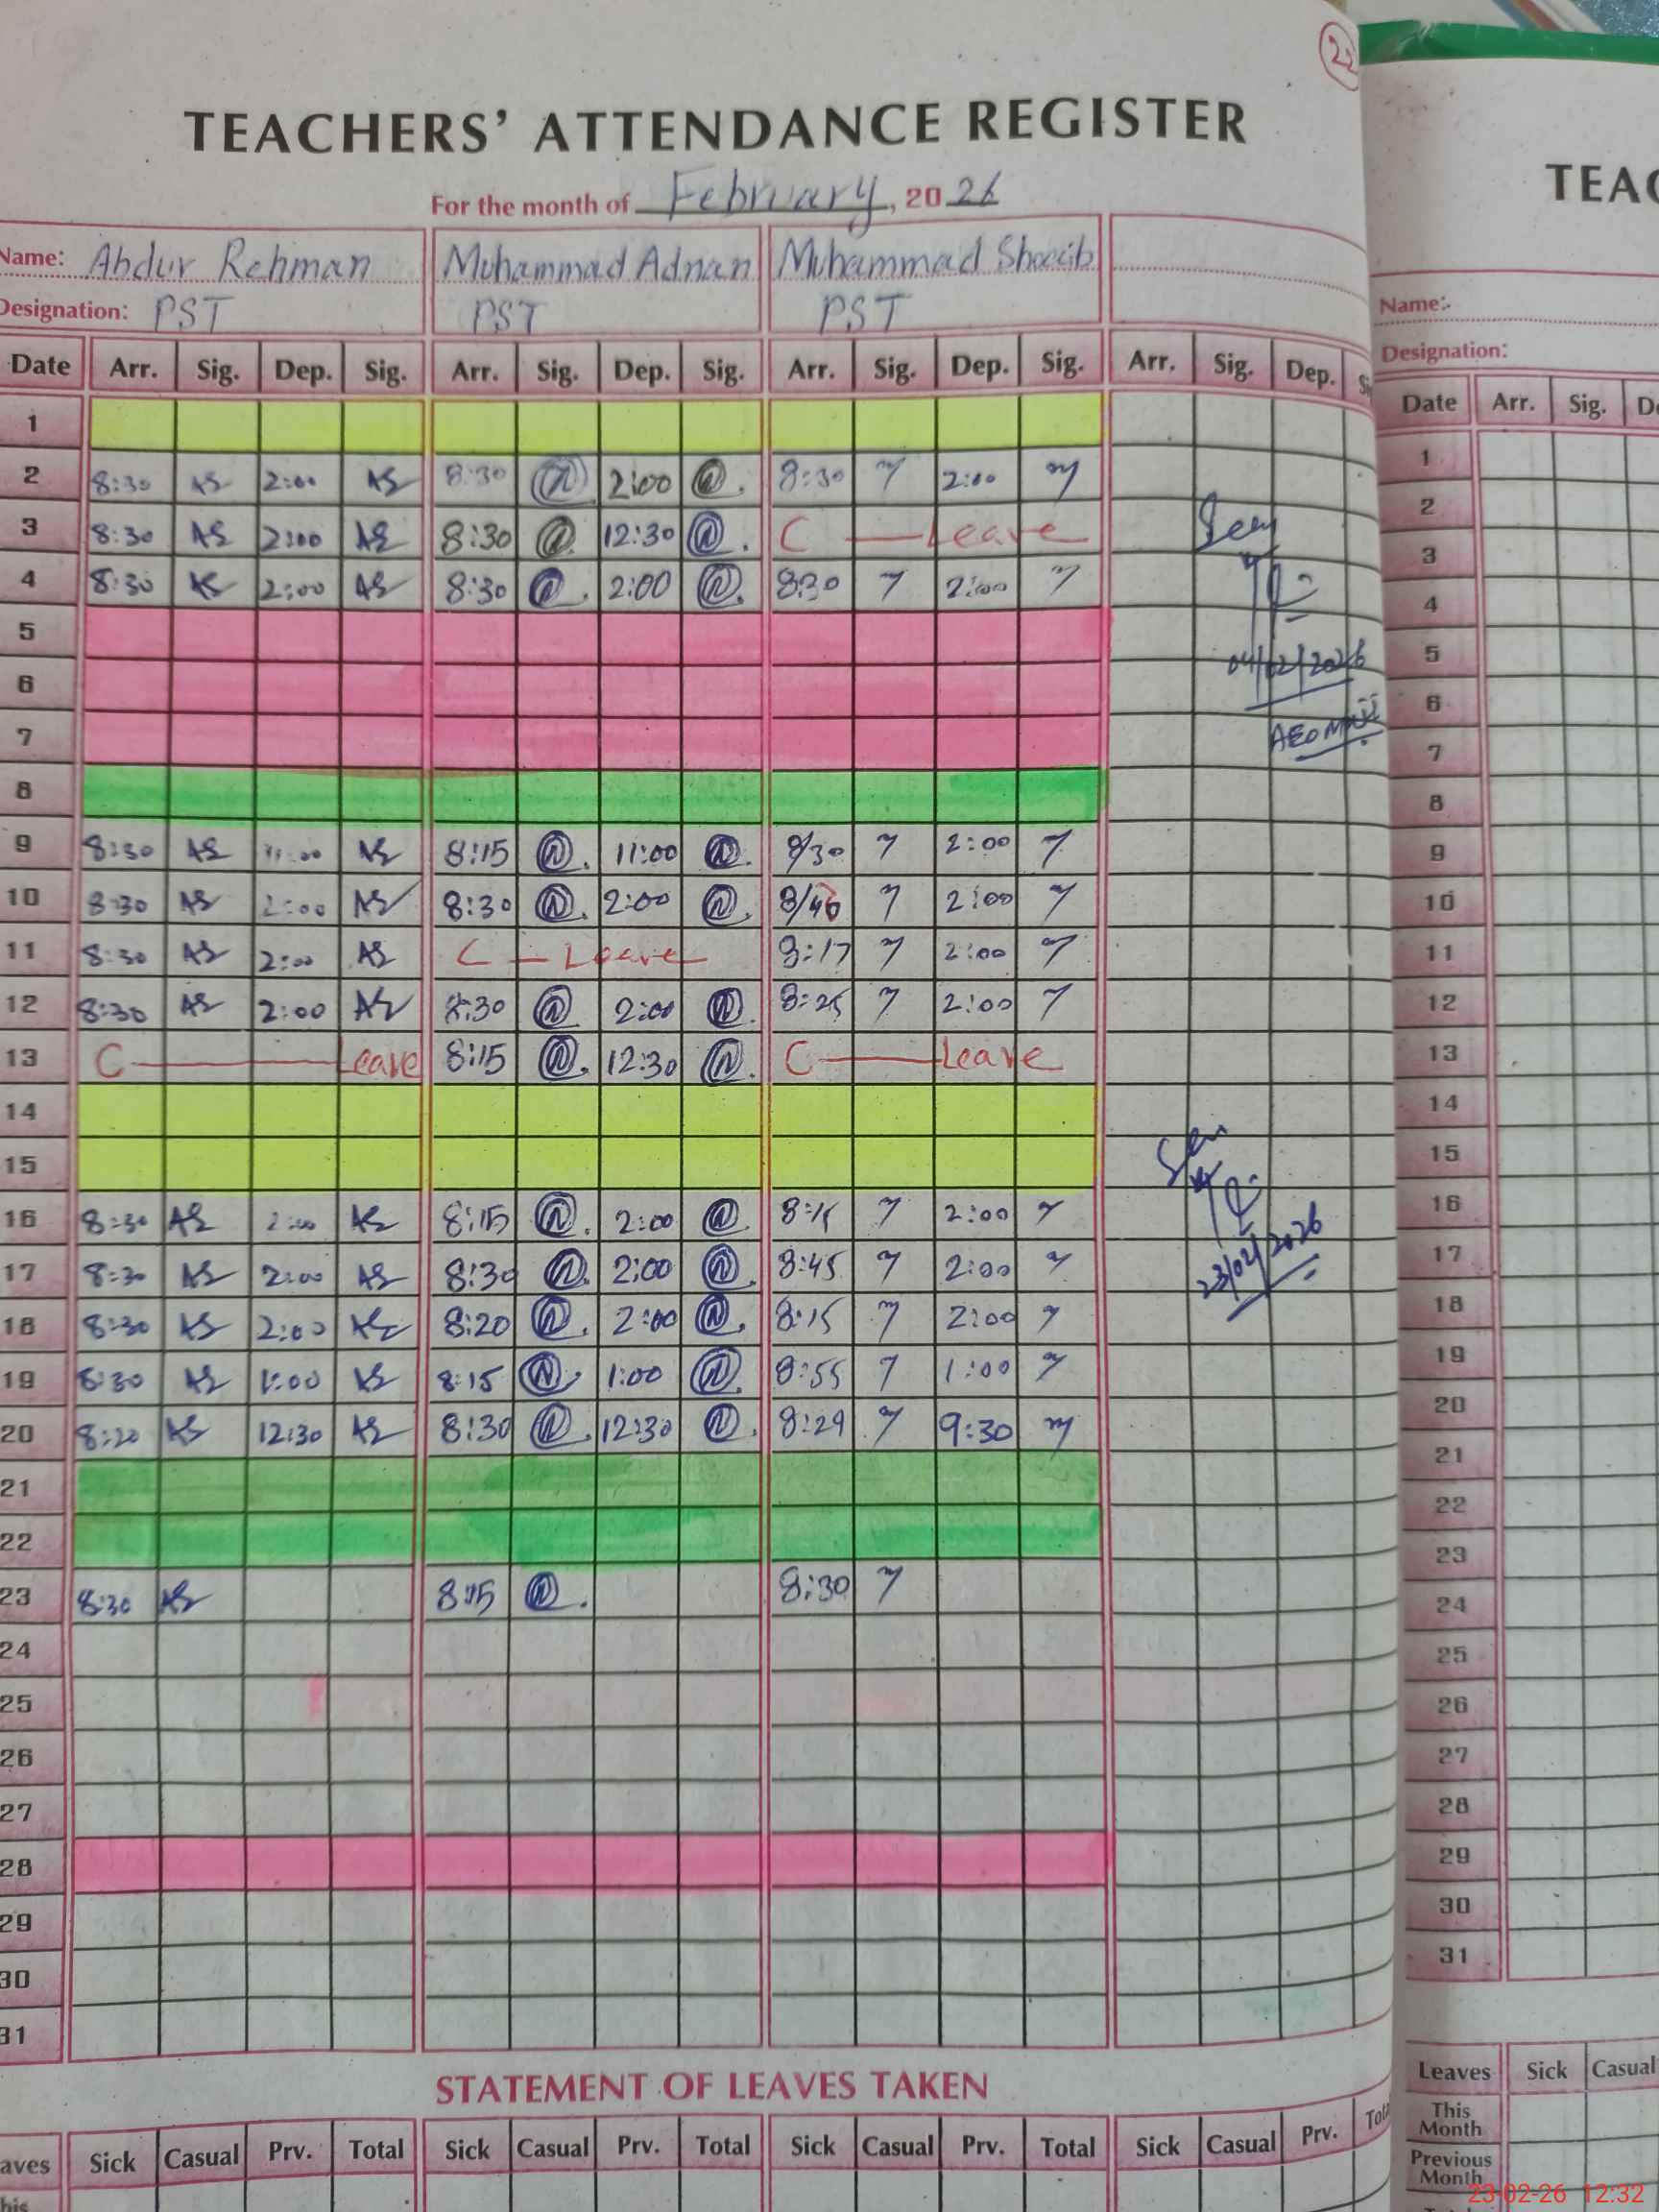 22
TEACHERS' ATTENDANCE REGISTER
For the month of February, 2026
Name: Abdur Rehman Muhammad Adnan Muhammad Shoaib
Designation: PST PST PST
Date Arr. Sig. Dep. Sig. Arr. Sig. Dep. Sig. Arr. Sig. Dep. Sig. Arr. Sig. Dep.
1
2 8:30 AS 2:00 AS 8:30 2:00 8:30 2:00
3 8:30 AS 2:00 AS 8:30 12:30 C — Leave
4 8:30 AS 2:00 AS 8:30 2:00 8:30 2:00
5
6
7
04/02/2026
AEO
8
9 8:30 AS 11:00 AS 8:15 11:00 8/30 2:00
10 8:30 AS 2:00 AS 8:30 2:00 2:00
11 8:30 AS 2:00 AS C — Leave 8:17 2:00
12 8:30 AS 2:00 AS 8:30 2:00 8:25 2:00
13 C — Leave 8:15 12:30 C — Leave
14
15
16 8:30 AS 2:00 AS 8:15 2:00 2:00
17 8:30 AS 2:00 AS 8:30 2:00 8:45 2:00
18 8:30 AS 2:00 AS 8:20 2:00 8:15 2:00
23/02/2026
19 8:30 AS 1:00 AS 8:15 1:00 8:55 1:00
20 AS 12:30 AS 8:30 12:30 8:29 9:30
21
22
23 8:30 AS 8:15 8:30
24
25
26
27
28
29
30
31
STATEMENT OF LEAVES TAKEN
Sick Casual Prv. Total Sick Casual Prv. Total Sick Casual Prv. Total Sick Casual Prv.
TEAC
Name:
Designation:
Date Arr. Sig.
1
2
3
4
5
6
7
8
9
10
11
12
13
14
15
16
17
18
19
20
21
22
23
24
25
26
27
28
29
30
31
Leaves Sick Casual
This
Month
Previous
Month
23-02-26 12:32